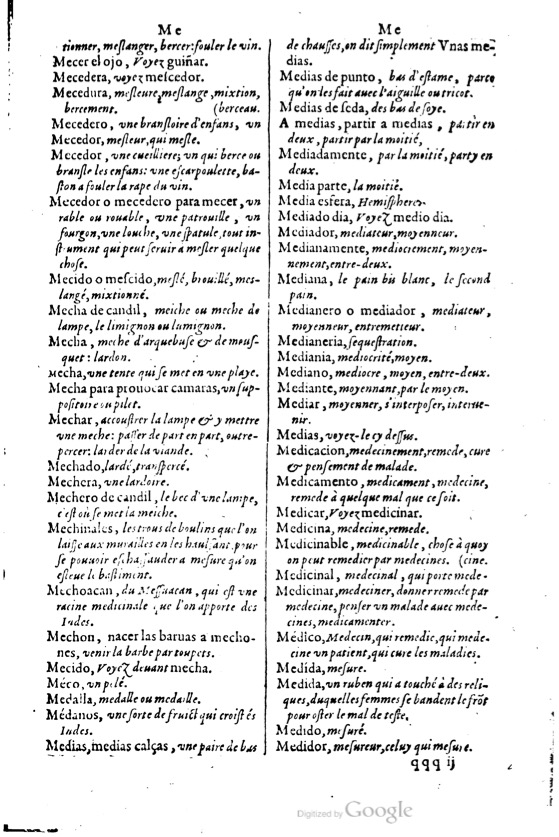 Me
tionner, meſlanger, bercer: fouler le vin.
Mecer el ojo, Voyez guiñar.
Mecedera, voyez meſcedor.
Mecedura, meſleure, meſlange, mixtion,
bercement. (berceau.
Mecedero, vne branſloire d'enfans, vn
Mecedor, meſleur, qui meſle.
Mecedor, vne cueilliere; vn qui berce ou
branſle les enfans: vne eſcarpoulette, ba-
ſton a fouler la rape du vin.
Mecedor o mecedero para mecer, vn
rable ou rouable, vne patrouille, vn
fourgon, vne louche, vne ſpatule, tout in-
ſtrument qui peut ſeruir a meſler quelque
choſe.
Mecido o meſcido, meſlé, brouillé, meſ-
langé, mixtionné.
Mecha de candil, meiche ou meche de
lampe, le limignon ou lumignon.
Mecha, meche d'arquebuſe & de mouſ-
quet: lardon.
Mecha, vne tente qui ſe met en vne playe.
Mecha para prouocar camaras, vn ſup-
poſitoire ou pilet.
Mechar, accouſtrer la lampe & y mettre
vne meche: paſſer de part en part, outre-
percer: larder de la viande.
Mechado, lardé, tranſpercé.
Mechera, vne lardoire.
Mechero de candil, le bec d'vne lampe,
c'eſt où ſe met la meiche.
Mechinales, les trous de boulins que l'on
laiſſe aux murailles en les hauſſant, pour
ſe pouuoir eſchaffauder a meſure qu'on
eſleue le baſtiment.
Mechoacan, du Meſſuacan, qui eſt vne
racine medicinale que l'on apporte des
Indes.
Mechon, nacer las baruas a mecho-
nes, venir la barbe par toupets.
Mecido, Voyez deuant mecha.
Méco, vn pelé.
Medalla, medalle ou medaille.
Médanos, vne ſorte de fruict qui croiſt és
Indes.
Medias, medias calças, vne paire de bas
Me
de chauſſes, on dit ſimplement Vnas me-
dias.
Medias de punto, bas d'eſtame, parce
qu'on les fait auec l'aiguille ou tricot.
Medias de ſeda, des bas de ſoye.
A medias, partir a medias, partir en
deux, partir par la moitié,
Mediadamente, par la moitié, party en
deux.
Media parte, la moitié.
Media esfera, Hemiſphere.
Mediado dia, Voyez medio dia.
Mediador, mediateur, moyenneur.
Medianamente, mediocrement, moyen-
nement, entre-deux.
Mediana, le pain bis blanc, le ſecond
pain.
Medianero o mediador, mediateur,
moyenneur, entremetteur.
Medianeria, ſequeſtration.
Mediania, mediocrité, moyen.
Mediano, mediocre, moyen, entre-deux.
Mediante, moyennant, par le moyen.
Mediar, moyenner, s'interpoſer, interue-
nir.
Medias, voyez-le cy deſſus.
Medicacion, medecinement, remede, cure
& penſement de malade.
Medicamento, medicament, medecine,
remede à quelque mal que ce ſoit.
Medicar, Voyez medicinar.
Medicina, medecine, remede.
Medicinable, medicinable, choſe à quoy
on peut remedier par medecines. (cine.
Medicinal, medecinal, qui porte mede-
Medicinar, medeciner, donner remede par
medecine, penſer vn malade auec mede-
cines, medicamenter.
Médico, Medecin, qui remedie, qui mede-
cine vn patient, qui cure les maladies.
Medida, meſure.
Medida, vn ruben qui a touché à des reli-
ques, duquel les femmes ſe bandent le frõt
pour oſter le mal de teſte.
Medido, meſuré.
Medidor, meſureur, celuy qui meſure.
qqq ij
Digitized by Google